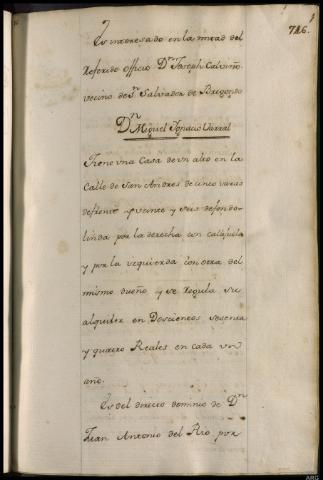 746.
Es interesado en la mitad del
referido officio Dⁿ Joseph Calviño
vecino de Sⁿ Salvador de Bergondo
Dⁿ Miguel Ignacio Varral
Tiene una Casa de un alto en la
Calle de San Andres de cinco varas
de frente, y veinte y seis de fondo-
linda por la derecha con callejuela
y por la izquierda con otra del
mismo dueño, y se regula su
alquiler en Doscientos sesenta
y quatro Reales en cada un
año.
Es del directo dominio de Dⁿ
Juan Antonio del Rio, por
ARG